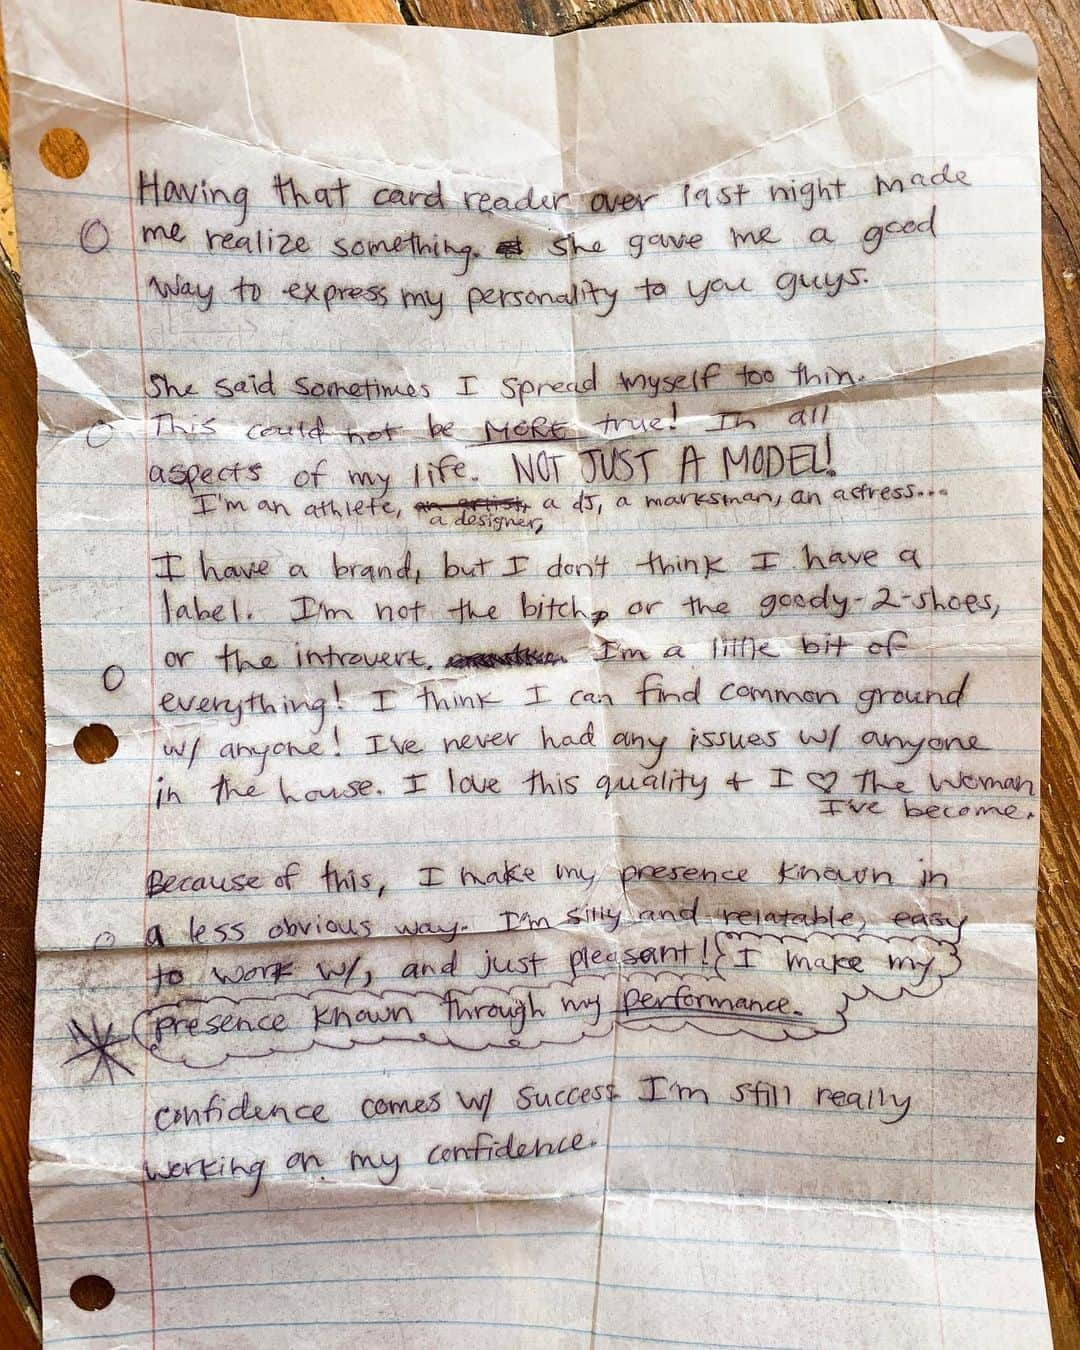 Having that card reader over last night made
me realize something. She gave me a good
way to express my personality to you guys.
She said sometimes I spread myself too thin.
This could not be MORE true! In all
aspects of my life. NOT JUST A MODEL!
I'm an athlete, an artist, a dJ, a marksman, an actress...
a designer,
I have a brand, but I don't think I have a
label. I'm not the bitch, or the goody-2-shoes,
or the introvert. I'm a little bit of
everything! I think I can find common ground
w/ anyone! I've never had any issues w/ anyone
in the house. I love this quality + I ♡ the woman
I've become.
Because of this, I make my presence known in
a less obvious way. I'm silly and relatable, easy
to work w/, and just pleasant! I make my
presence known through my performance.
confidence comes w/ success I'm still really
working on my confidence.